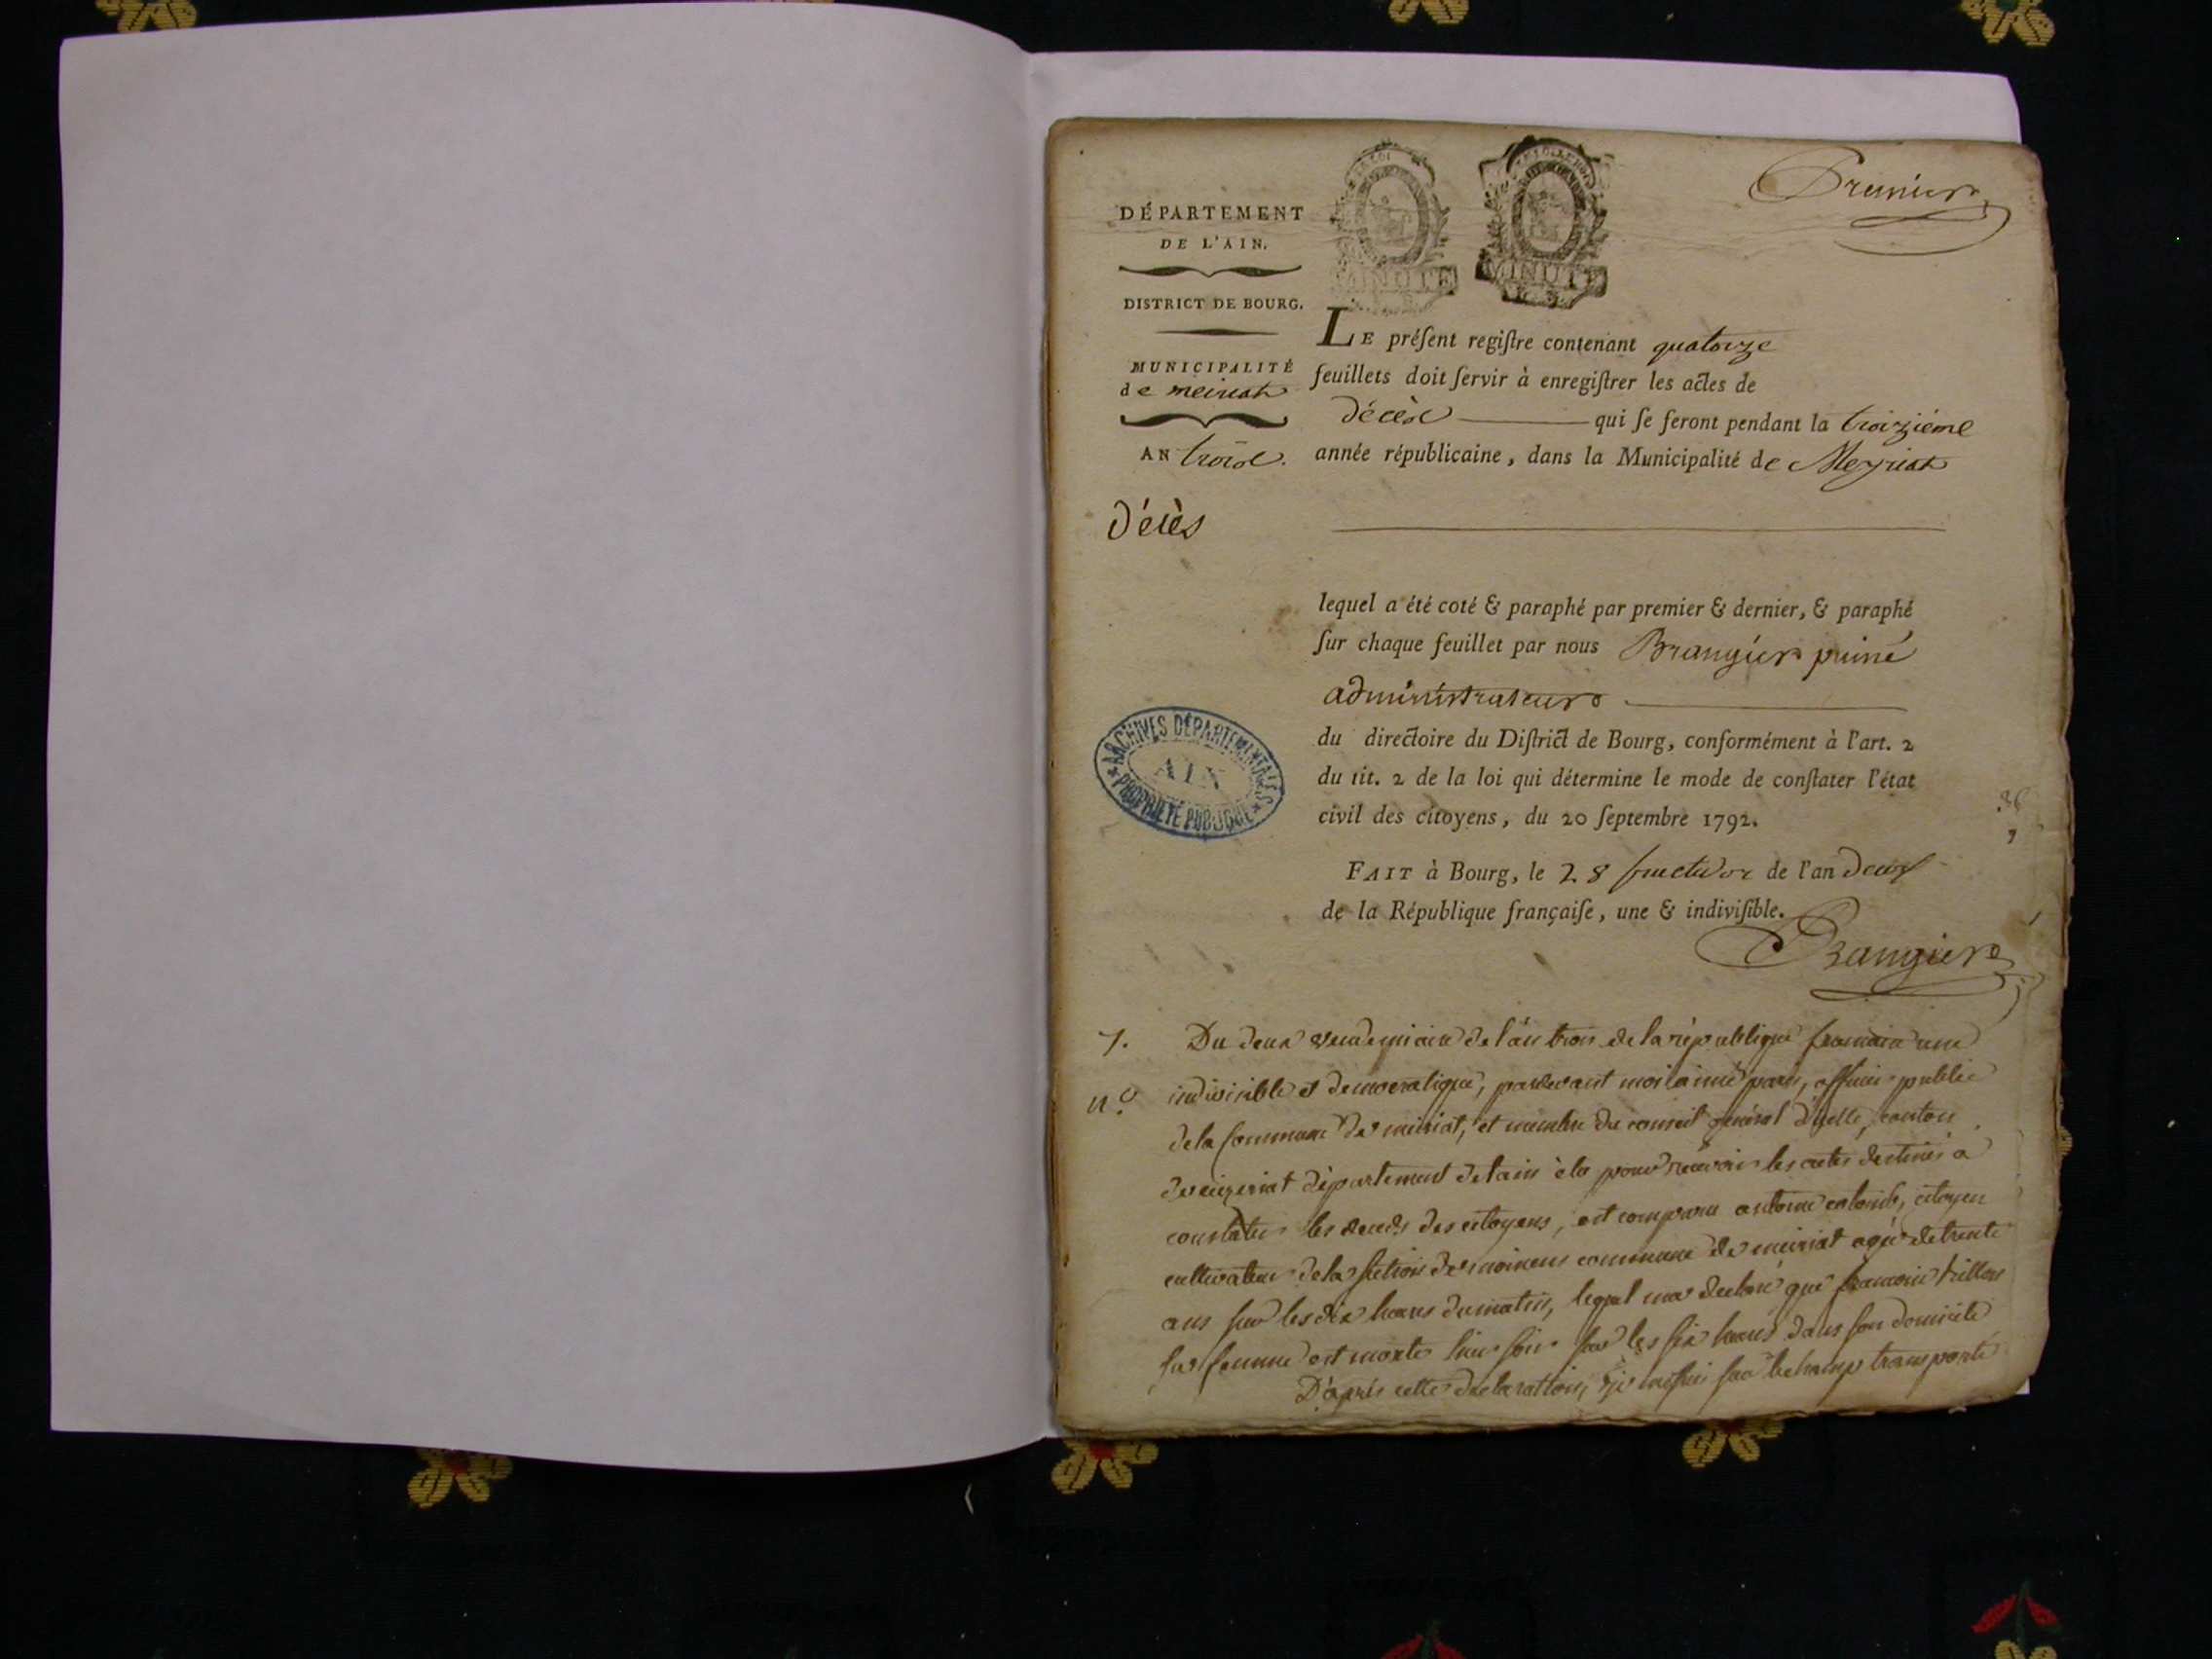 Premier
DÉPARTEMENT
DE L'AIN.
DISTRICT DE BOURG.
MUNICIPALITÉ
de meiriat
AN trois.
décès
MINUTE
MINUTE
LE préſent regiſtre contenant quatorze
feuillets doit ſervir à enregiſtrer les actes de
décès qui ſe feront pendant la troizième
année républicaine, dans la Municipalité de Meyriat
lequel a été coté & paraphé par premier & dernier, & paraphé
ſur chaque feuillet par nous Brangier puiné
administrateur
du directoire du Diſtrict de Bourg, conformément à l'art. 2
du tit. 2 de la loi qui détermine le mode de conſtater l'état
civil des citoyens, du 20 ſeptembre 1792.
FAIT à Bourg, le 28 fructidor de l'an deux
de la République françaiſe, une & indiviſible.
Brangier
ARCHIVES DÉPARTEMENTALES
AIN
PROPRIÉTÉ PUBLIQUE
Du deux vendemiaire de l'an trois de la république francaise une
n.o indivisible et democratique, pardevant moi aimé, officier public
de la commune de meiriat, et membre du conseil général d'icelle, canton
de ceizeriat département de lain élu pour recevoir les actes destinés a
constater les décès des citoyens, est comparu antoine, citoyen
cultivateur de la section de moinens commune de meiriat agé de trente
ans sur les dix heures du matin, lequel ma declaré que francoise
sa femme est morte hier soir sur les six heures dans son domicile
D'après cette declaration, je me suis sur le champ transporté